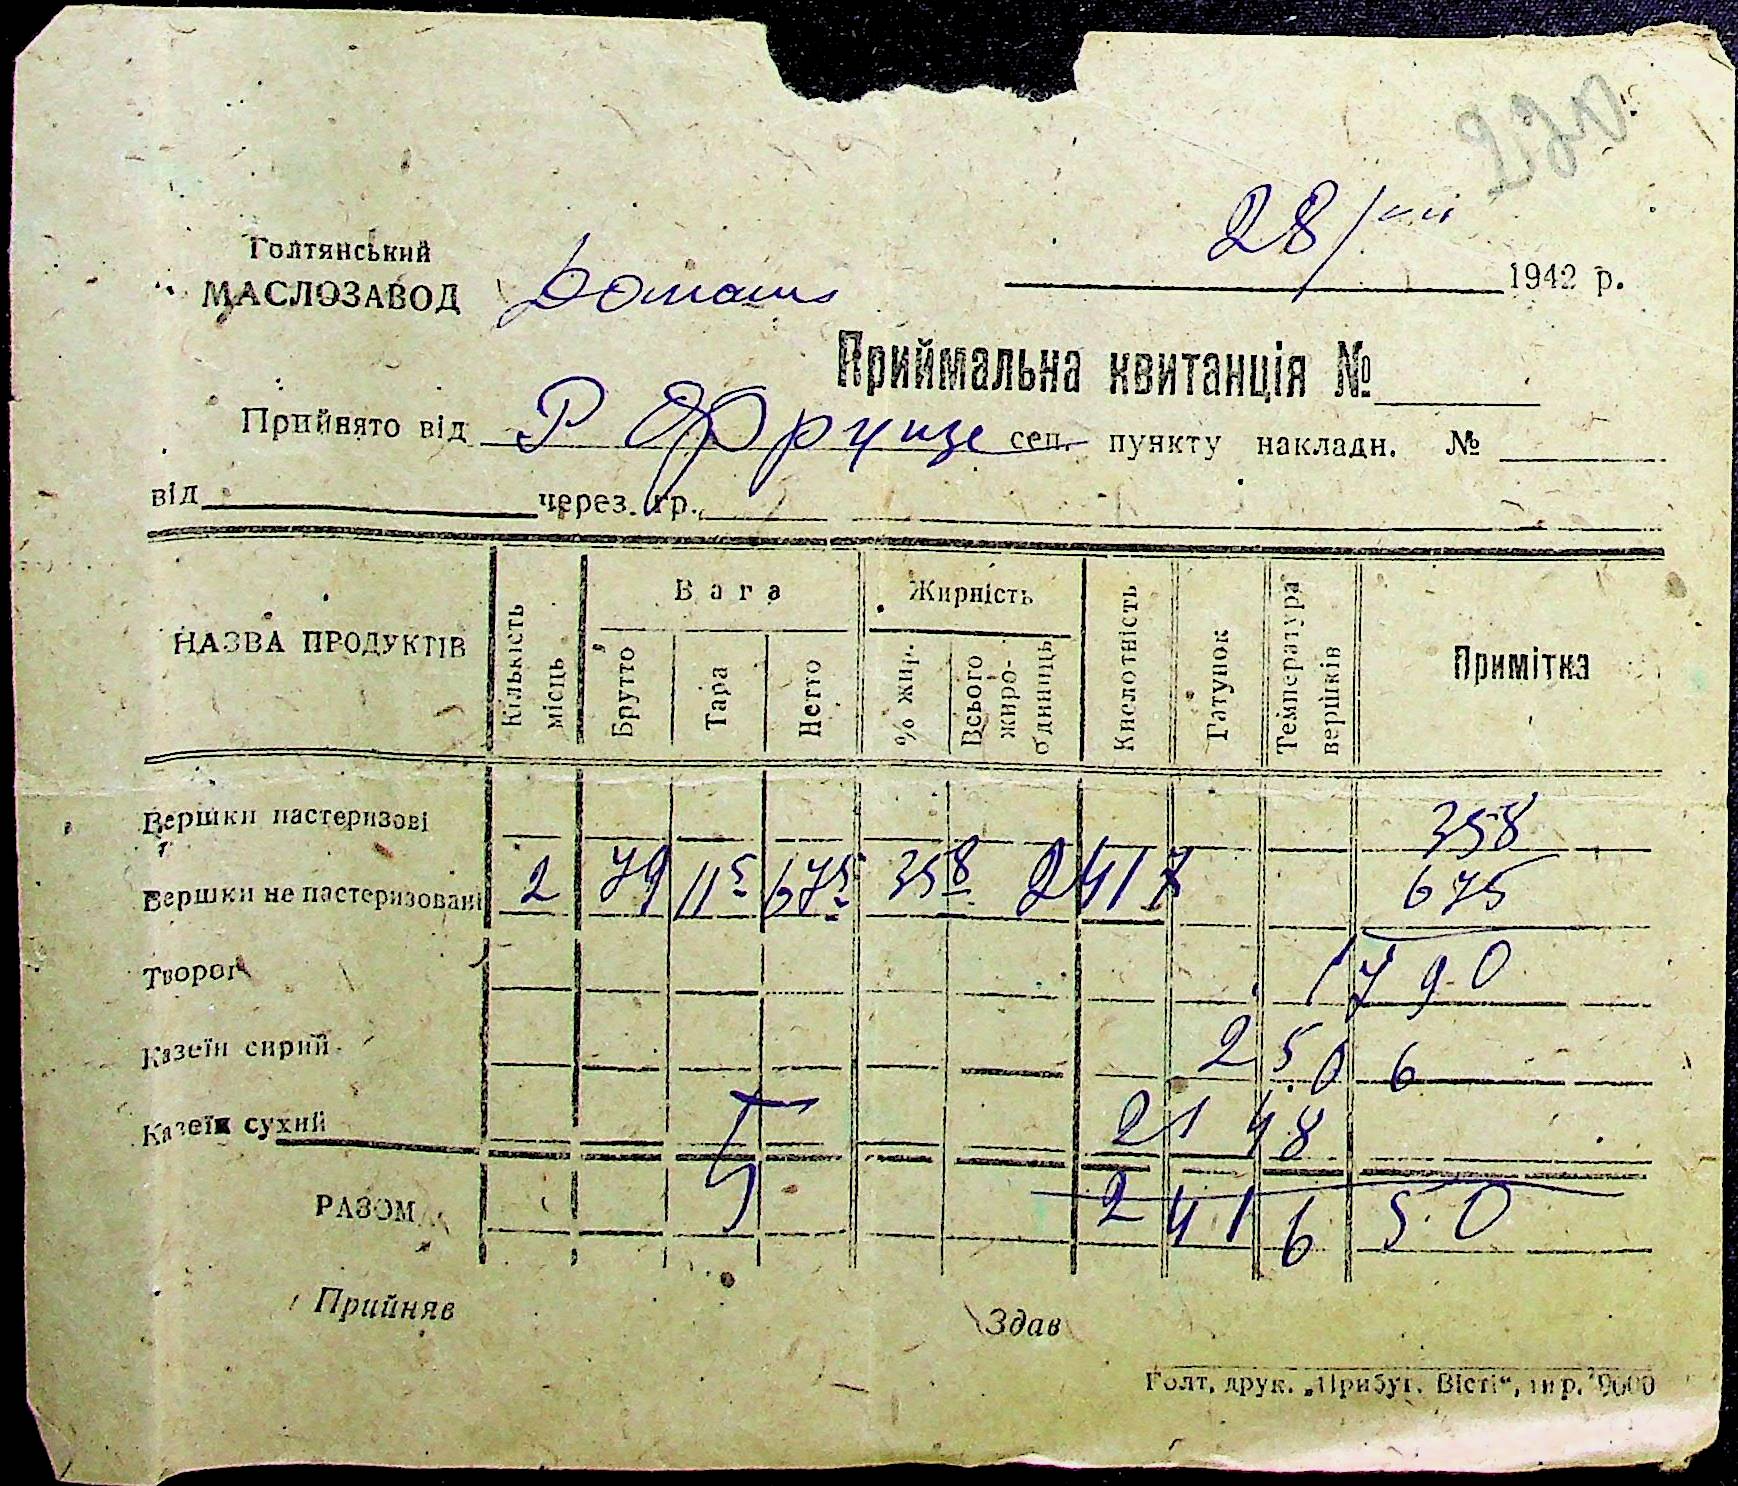 28/VIII
Голтянський
МАСЛОЗАВОД
1942 р.
Приймальна квитанція №
Прийнято від Р Фрунзе сеп. пункту накладн. №
від через гр.
НАЗВА ПРОДУКТІВ
Кількість місць
Вага
Брутто
Тара
Нетто
Жирність
% жир.
Всього жиро-одиниць
Кислотність
Гатунок
Температура вершків
Примітка
Вершки пастеризові 358
Вершки не пастеризовані 2 79 11 5 67 5 35 8 2417 675
Творог 1790
Казеїн сирий 2506
Казеїн сухий 2148
РАЗОМ 241650
Прийняв
Здав
Голт. друк. „Прибуг. Вісті“, тир. 9000